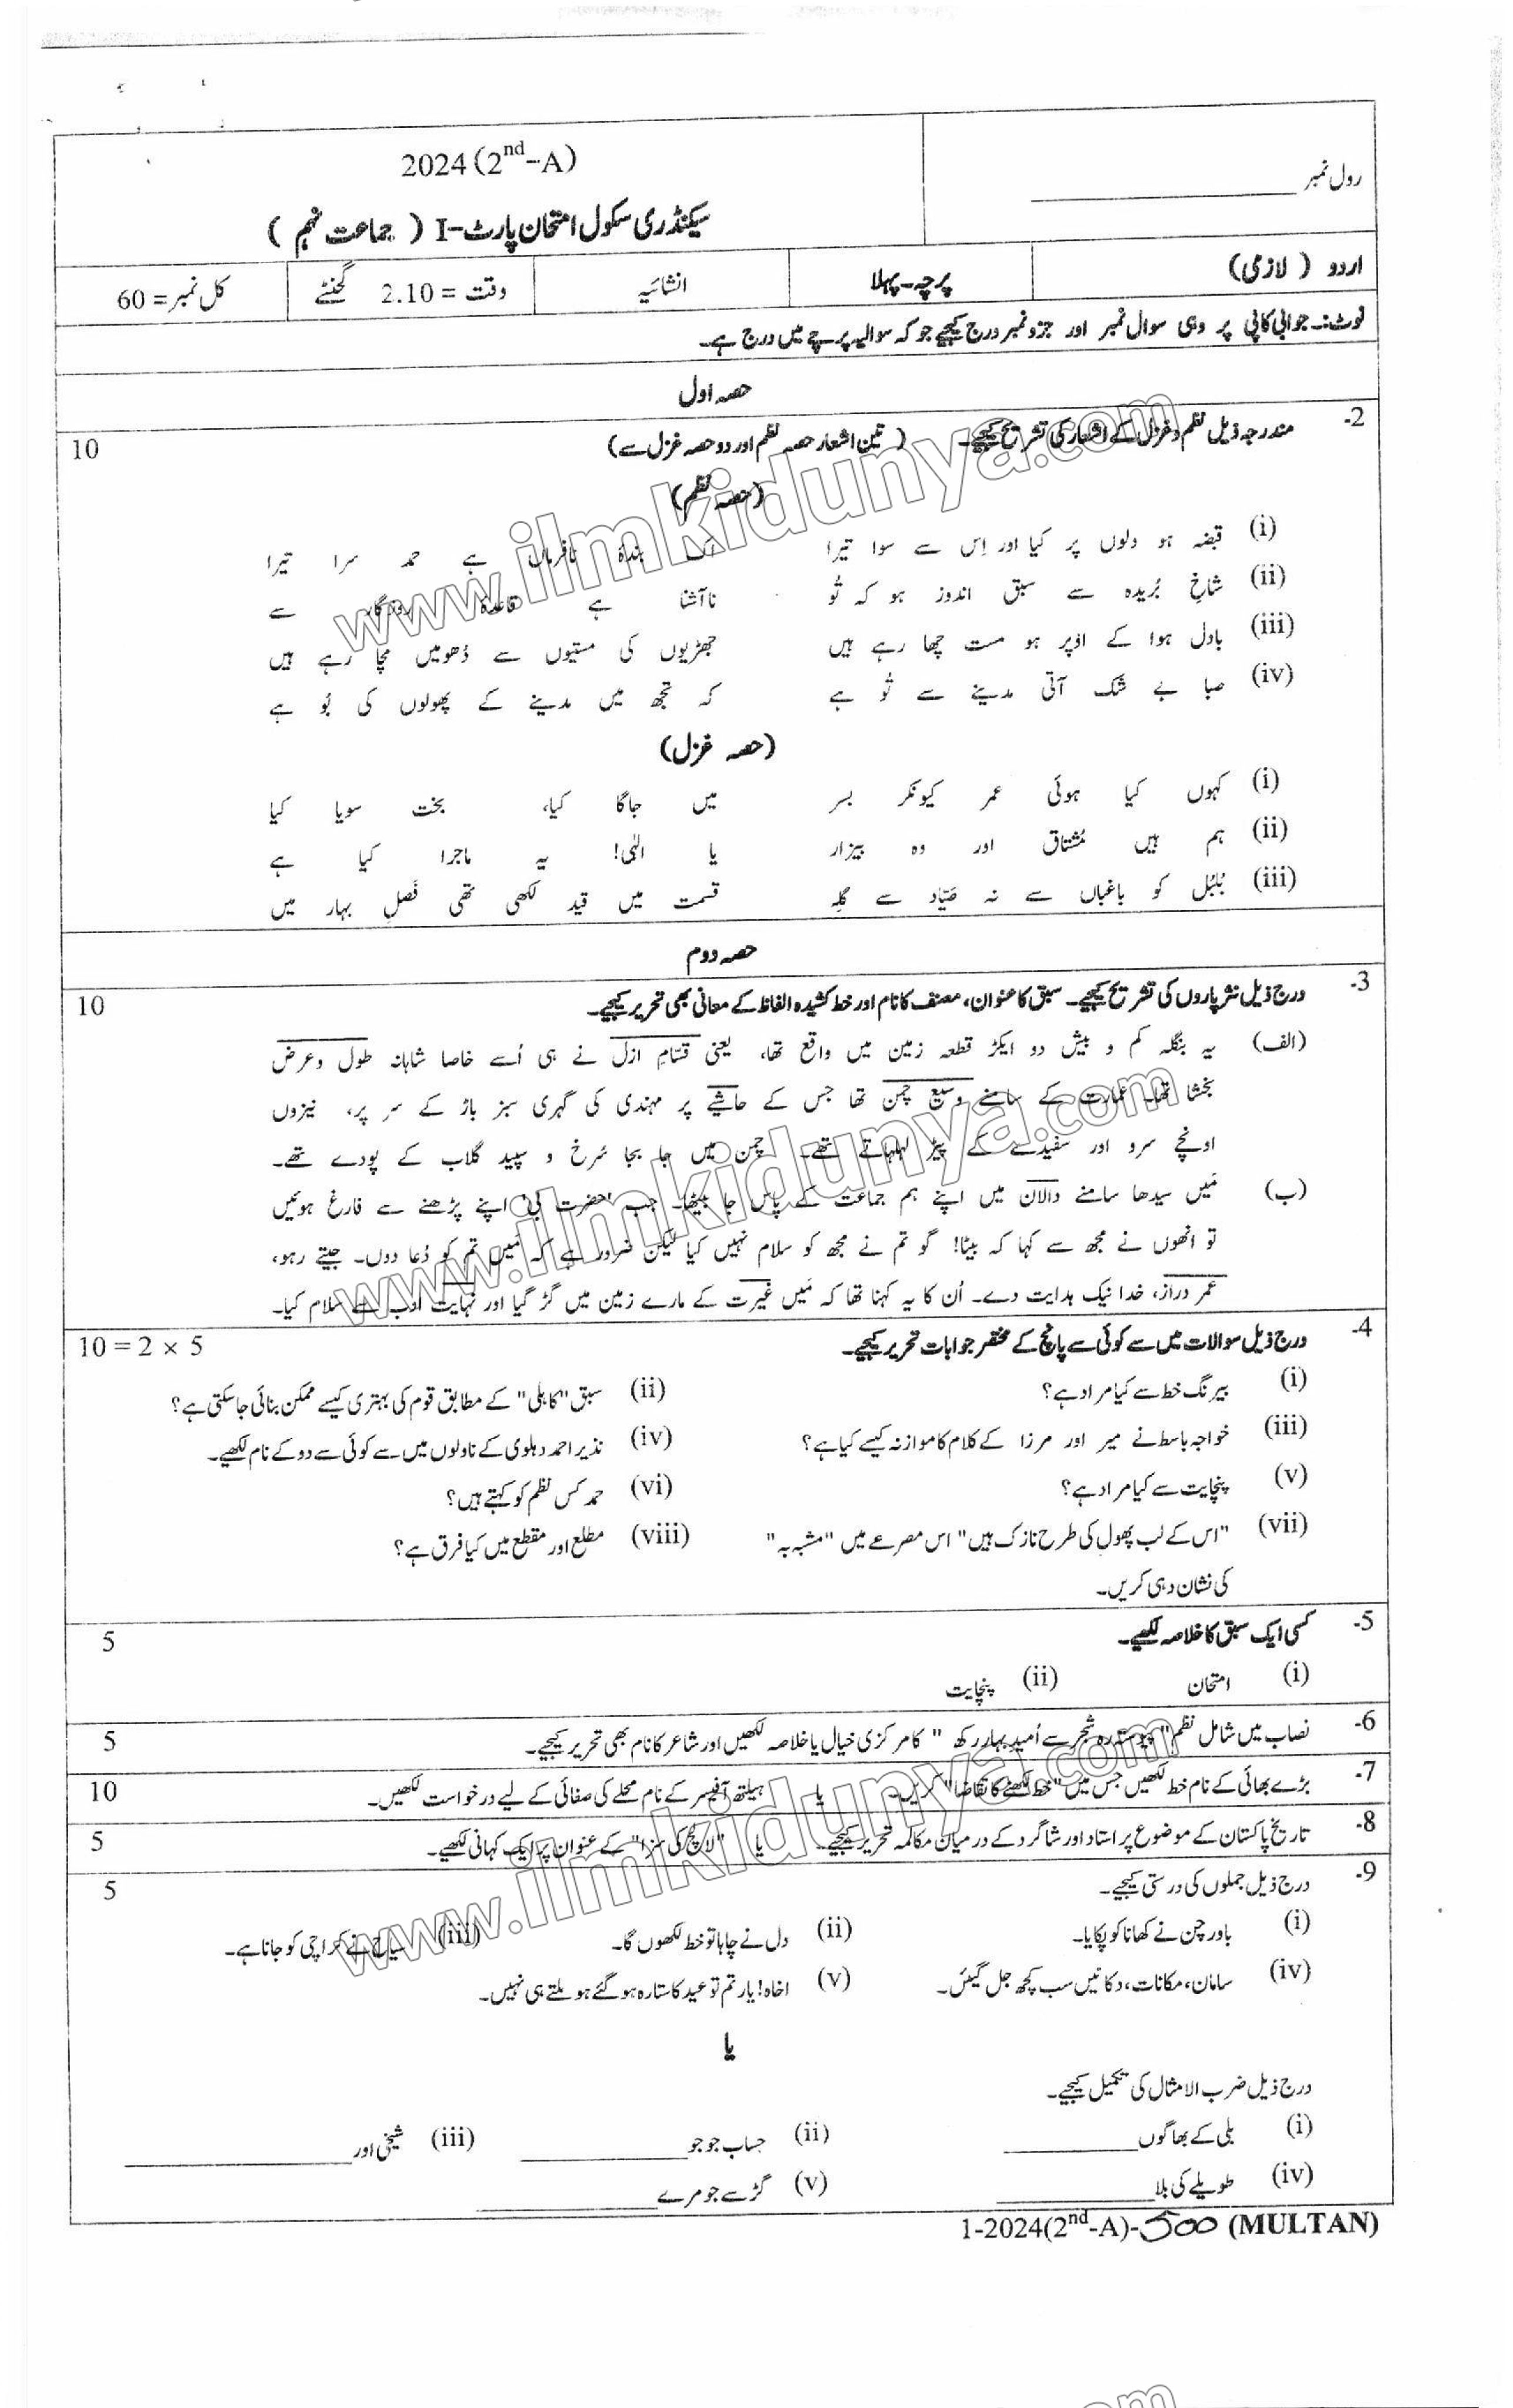 2024(2nd-A)
رول نمبر
سیکنڈری سکول امتحان پارٹ-I ( جماعت نہم )
اردو ( لازمی) پرچہ-پہلا انشائیہ وقت = 2.10 گھنٹے کل نمبر = 60
نوٹ:۔جوابی کاپی پر وہی سوال نمبر اور جزو نمبر درج کیجیے جو کہ سوالیہ پرچے میں درج ہے۔
حصہ اول
2- مندرجہ ذیل نظم و غزل کے اشعار کی تشریح کیجیے۔ ( تین اشعار حصہ نظم اور دو حصہ غزل سے) 10
(حصہ نظم)
(i) قبضہ ہو دلوں پر کیا اور اِس سے سوا تیرا اک بندۂ نافرماں ہے حمد سرا تیرا
(ii) شاخِ بُریدہ سے سبق اندوز ہو کہ تُو ناآشنا ہے قاعدۂ روزگار سے
(iii) بادل ہوا کے اوپر ہو مست چھا رہے ہیں جھڑیوں کی مستیوں سے دُھومیں مچا رہے ہیں
(iv) صبا بے شک آتی مدینے سے تُو ہے کہ تجھ میں مدینے کے پھولوں کی بُو ہے
(حصہ غزل)
(i) کہوں کیا ہوئی عمر کیونکر بسر میں جاگا کیا، بخت سویا کیا
(ii) ہم ہیں مُشتاق اور وہ بیزار یا الٰہی! یہ ماجرا کیا ہے
(iii) بُلبُل کو باغباں سے نہ صَیّاد سے گلہ قسمت میں قید لکھی تھی فَصلِ بہار میں
حصہ دوم
3- درج ذیل نثر پاروں کی تشریح کیجیے۔ سبق کا عنوان، مصنف کا نام اور خط کشیدہ الفاظ کے معانی بھی تحریر کیجیے۔ 10
(الف) یہ بنگلہ کم و بیش دو ایکڑ قطعہ زمین میں واقع تھا، یعنی قسّامِ ازل نے ہی اُسے خاصا شاہانہ طول وعرض
بخشا تھا۔ عمارت کے سامنے وسیع چمن تھا جس کے حاشیے پر مہندی کی گہری سبز باڑ کے سر پر، نیزوں
اونچے سرو اور سفیدے کے پیڑ لہلہاتے تھے۔ چمن میں جا بجا سُرخ و سپید گلاب کے پودے تھے۔
(ب) مَیں سیدھا سامنے دالان میں اپنے ہم جماعت کے پاس جا بیٹھا۔ جب 'حضرت بی' اپنے پڑھنے سے فارغ ہوئیں
تو انھوں نے مجھ سے کہا کہ بیٹا! گو تم نے مجھ کو سلام نہیں کیا لیکن ضرور ہے کہ مَیں تم کو دُعا دوں۔ جیتے رہو،
عمر دراز، خدا نیک ہدایت دے۔ اُن کا یہ کہنا تھا کہ مَیں غیرت کے مارے زمین میں گڑ گیا اور نہایت ادب سے سلام کیا۔
4- درج ذیل سوالات میں سے کوئی سے پانچ کے مختصر جوابات تحریر کیجیے۔ 10 = 2 × 5
(i) بیرنگ خط سے کیا مراد ہے؟ (ii) سبق "کاہلی" کے مطابق قوم کی بہتری کیسے ممکن بنائی جا سکتی ہے؟
(iii) خواجہ باسط نے میر اور مرزا کے کلام کا موازنہ کیسے کیا ہے؟ (iv) نذیر احمد دہلوی کے ناولوں میں سے کوئی سے دو کے نام لکھیے۔
(v) پنچایت سے کیا مراد ہے؟ (vi) حمد کس نظم کو کہتے ہیں؟
(vii) "اس کے لب پھول کی طرح نازک ہیں" اس مصرعے میں "مشبہ بہ" (viii) مطلع اور مقطع میں کیا فرق ہے؟
کی نشان دہی کریں۔
5- کسی ایک سبق کا خلاصہ لکھیے۔ 5
(i) امتحان (ii) پنچایت
6- نصاب میں شامل نظم" پیوستہ رہ شجر سے اُمید بہار رکھ " کا مرکزی خیال یا خلاصہ لکھیں اور شاعر کا نام بھی تحریر کیجیے۔ 5
7- بڑے بھائی کے نام خط لکھیں جس میں "خط لکھنے کا تقاضا" کریں۔ یا ہیلتھ آفیسر کے نام محلے کی صفائی کے لیے درخواست لکھیں۔ 10
8- تاریخ پاکستان کے موضوع پر استاد اور شاگرد کے درمیان مکالمہ تحریر کیجیے۔ یا "لالچ کی سزا" کے عنوان پر ایک کہانی لکھیے۔ 5
9- درج ذیل جملوں کی درستی کیجیے۔ 5
(i) باورچن نے کھانا کو پکایا۔ (ii) دل نے چاہا تو خط لکھوں گا۔ (iii) نے کراچی کو جانا ہے۔
(iv) سامان، مکانات، دکانیں سب کچھ جل گیئں۔ (v) اخاہ! یار تم تو عید کا ستارہ ہو گئے ہو ملتے ہی نہیں۔
یا
درج ذیل ضرب الامثال کی تکمیل کیجیے۔
(i) بلی کے بھاگوں (ii) حساب جو جو (iii) شیخی اور
(iv) طویلے کی بلا (v) گڑ سے جو مرے
1-2024(2nd-A)-500 (MULTAN)
www.ilmkidunya.com
www.ilmkidunya.com
www.ilmkidunya.com